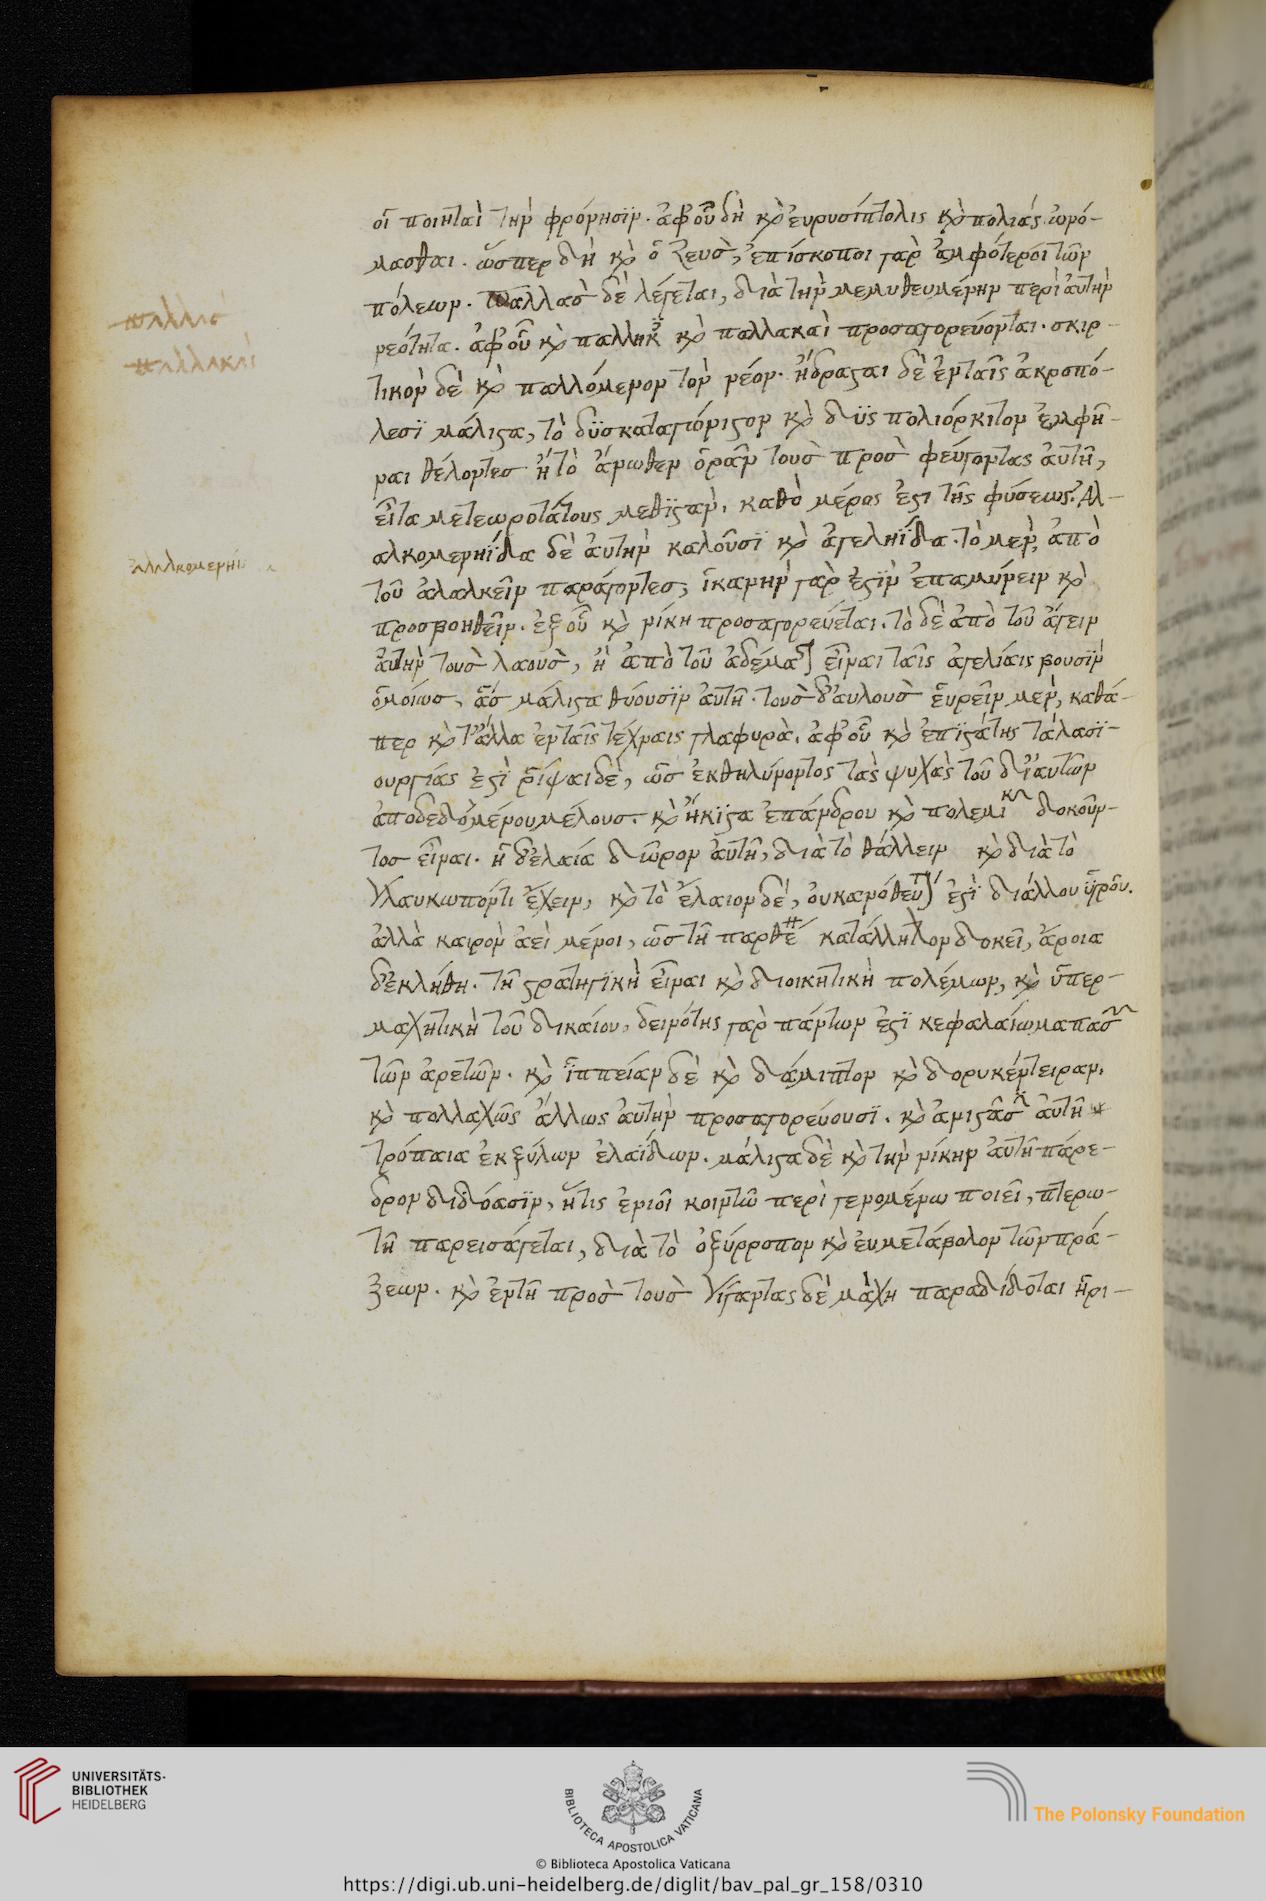 πάλλασ
πάλλακαί
ἀλαλκομενηί
οἱ ποιηταὶ τὴν φρόνησϊν. ἀφ' οὗ δὴ κὶ ἐυρυσίπτολις κὶ πολιάς ὠνό-
μασθαι. ὥσπερ δὴ κὶ ὁ ζευσ, ἐπίσκοποι γὰρ ἀμφότεροι τῶν
πόλεων. Παλλασ δὲ λέγεται, διὰ τὴν μεμυθευμένην περὶ ἀυτὴν
νεότητα. ἀφ' οὗ κὶ παλληκ κὶ παλλακαὶ προσαγορεύονται. σκιρ-
τικὸν δὲ κὶ παλλόμενον τὸν νέον. ἥδρασαι δὲ ἐν ταῖς ἀκροπό-
λεσϊ μάλιστα, τὸ δϋσκαταγώνιστον κὶ δϋς πολιόρκιτον ἐμφῆ-
ναι θέλοντεσ ἢ τὸ ἄνωθεν ὁρᾶν τουσ προσ φεύγοντας ἀυτῇ,
εἶτα μετεωροτάτους μεθϊσταν, καθὸ μέρος ἐστι τῆς φύσεως. Ἀλ-
αλκομενηΐδα δὲ ἀυτὴν καλοῦσϊ κὶ ἀγεληΐδα. τὸ μεν, ἀπὸ
τοῦ ἀλαλκεῖν παράγοντεσ, ἱκανὴν γὰρ ἐστϊν ἐπαμύνειν κὶ
προσβοηθεῖν. ἐξ οὗ κὶ νίκη προσαγορεύεται. τὸ δὲ ἀπὸ τοῦ ἄγειν
ἀυτὴν τουσ λαουσ, ἢ ἀπὸ τοῦ ἀδέμα εἶναι ταῖς ἀγελίαις βουσϊν
ὁμοίωσ, ἅσ μάλιστα θύουσϊν ἀυτῇ. τουσ δ' αυλουσ εὑρεῖν μεν, καθά-
περ κὶ τ' ἄλλα ἐν ταῖς τέχναις γλαφυρὰ. ἀφ' οὗ κὶ ἐπϊστάτης ταλασϊ-
ουργίας ἐστὶ ῥίψαι δὲ, ὡσ ἐκθηλύνοντος τὰς ψυχὰς τοῦ δι' ἀυτῶν
ἀποδεδομένου μέλουσ. κὶ ἥκϊστα ἐπάνδρου κὶ πολεμικ δοκοῦν-
τοσ εἶναι. ἡ δ' ἐλαία δῶρον ἀυτῇ, διὰ τὸ θάλλειν κὶ διὰ τὸ
γλαυκωπόν τι ἔχειν, κὶ τὸ ἔλαιον δὲ, ὀυκ ἀνόθευτ ἐστϊ δι' ἄλλου ὑγροῦ.
ἀλλὰ καιρον ἀεὶ μένοι, ὡσ τῇ παρθε κατάλληλον δοκεῖ, ἄροια
δ' ἐκλήθη. τῇ στρατηγϊκὴ εἶναι κὶ διοικητικὴ πολέμων, κὶ ὑπερ-
μαχητικὴ τοῦ δικαίου, δεινότης γὰρ πάντων ἐστϊ κεφαλαίωμα πασ
τῶν ἀρετῶν. κὶ ἱππείαν δὲ κὶ δάμιπτον κὶ δορυκέντειραν.
κὶ πολλαχῶς ἄλλως ἀυτὴν προσαγορεύουσϊ. κὶ ἀνιστᾶσ ἀυτῇ
τρόπαια ἐκ ξύλων ἐλαΐδων. μάλιστα δὲ κὶ τὴν νίκην ἀυτῇ πάρε-
δρον διδόασϊν, ἥτις ἑνιοῖ κοιντῶ περὶ γενομένω ποιεῖ, πτερω-
τῇ παρεισάγεται, διὰ τὸ ὀξύρροπον κὶ ἐυμετάβολον τῶν πρά-
ξεων. κὶ ἐν τῇ προσ τουσ γίγαντας δὲ μάχη παραδίδοται ἠρι-
UNIVERSITÄTS-
BIBLIOTHEK
HEIDELBERG
BIBLIOTECA APOSTOLICA VATICANA
The Polonsky Foundation
© Biblioteca Apostolica Vaticana
https://digi.ub.uni-heidelberg.de/diglit/bav_pal_gr_158/0310